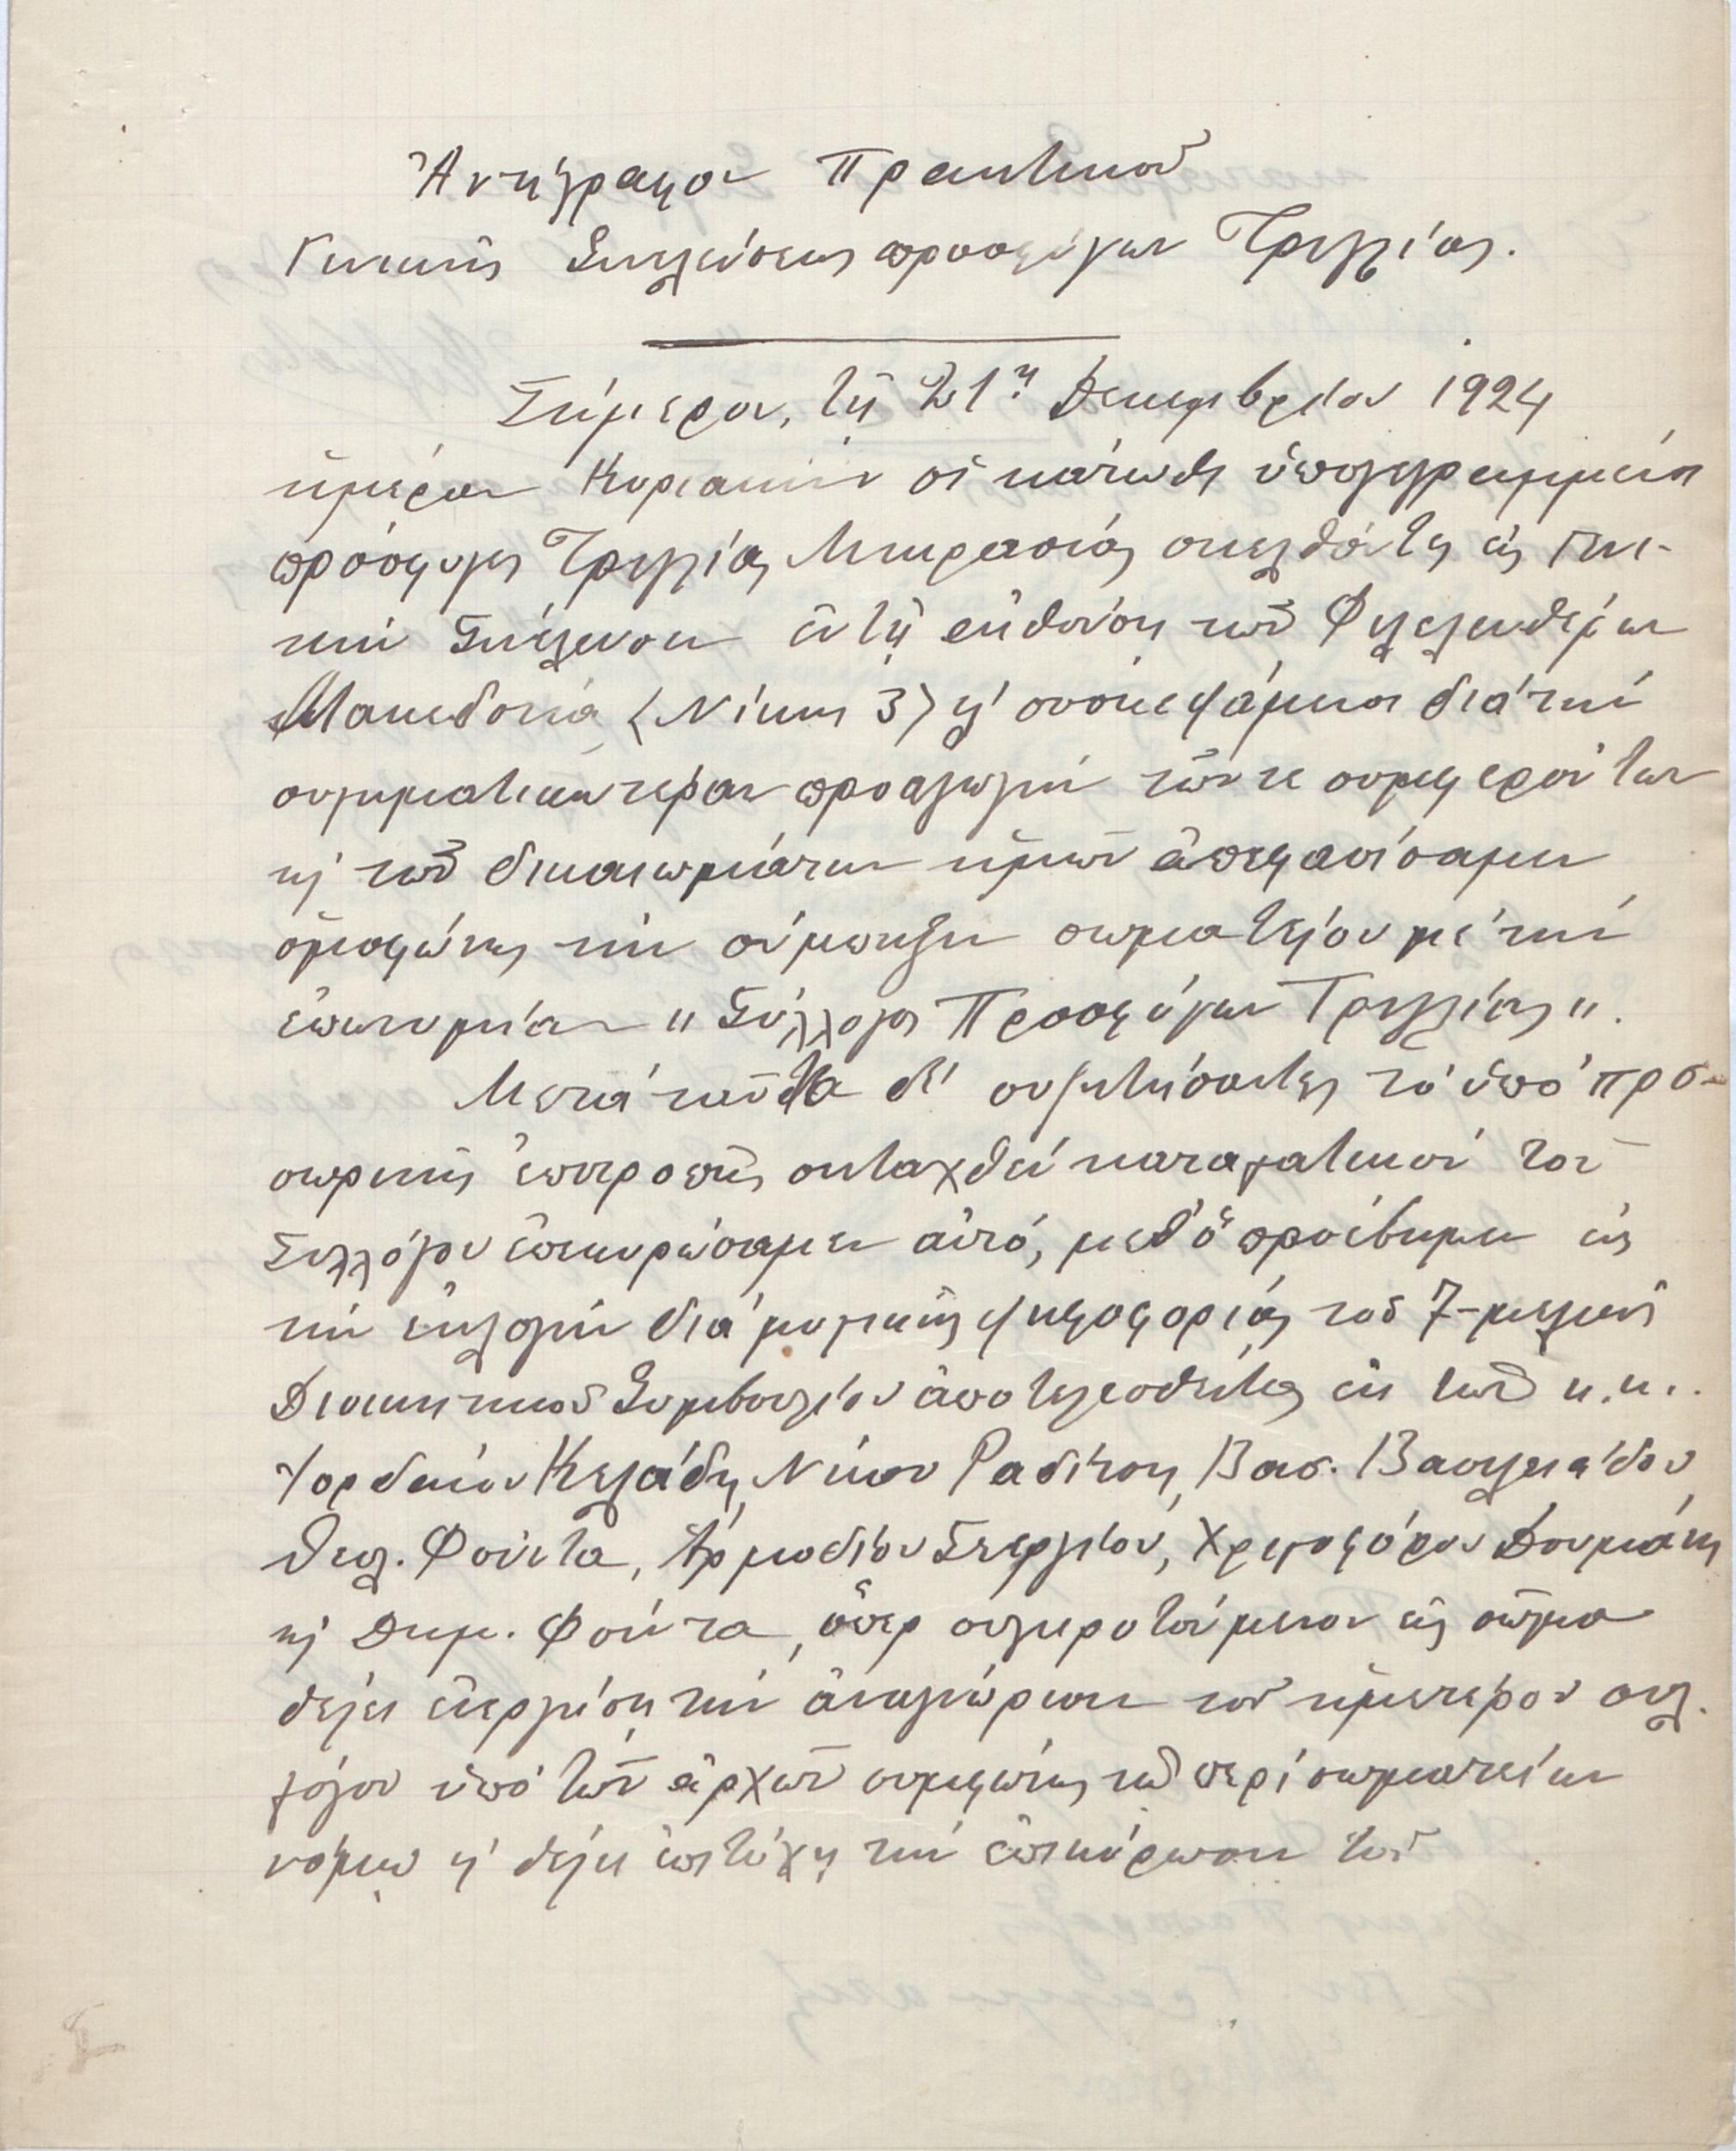 Ἀντίγραφον Πρακτικοῦ
Γενικῆς Συνελεύσεως προσφύγων Τριγλίας.
Σήμερον, τῇ 21ῃ Δεκεμβρίου 1924
ἡμέραν Κυριακὴν οἱ κάτωθι ὑπογεγραμμένοι
πρόσφυγες Τριγλίας Μικρασίας συνελθόντες εἰς Γενι-
κὴν Συνέλευσιν ἐν τῇ αἰθούσῃ τῶν Φιλελευθέρων
Μακεδονίας (Νίκης 3) κ' συσκεφθέντες διὰ τὴν
συστηματικωτέραν προαγωγὴν τῶν τε συμφερόντων
κ' τῶν δικαιωμάτων ἡμῶν ἀπεφασίσαμεν
ὁμοφώνως τὴν σύμπηξιν σωματείου μὲ τὴν
ἐπωνυμίαν "Σύλλογος Προσφύγων Τριγλίας".
Μετὰ ταῦτα δὲ συζητήσαντες τὸ ὑπὸ προ-
σωρινῆς ἐπιτροπῆς συνταχθὲν καταστατικὸν τοῦ
Συλλόγου ἐπεκυρώσαμεν αὐτό, μεθ' ὃ προέβημεν εἰς
τὴν ἐκλογὴν διὰ μυστικῆς ψηφοφορίας τοῦ 7-μελοῦς
Διοικητικοῦ Συμβουλίου ἀποτελεσθέντος ἐκ τῶν κ.κ.
Ἰορδάνου Κελάδη, Νίκου Ραδίτση, Βασ. Βασιλειάδου,
Θεολ. Φούντα, Ἁρμοδίου Σεργίου, Χριστοφόρου Δουμάνη
κ' Δημ. Φούντα, ὅπερ συγκροτούμενον εἰς σῶμα
θέλει ἐνεργήσῃ τὴν ἀναγνώρισιν τοῦ ἡμετέρου συλ-
λόγου ὑπὸ τῶν ἀρχῶν συμφώνως τῷ περὶ σωματείων
νόμῳ κ' θέλει ἐπιτύχῃ τὴν ἐπικύρωσιν τοῦ